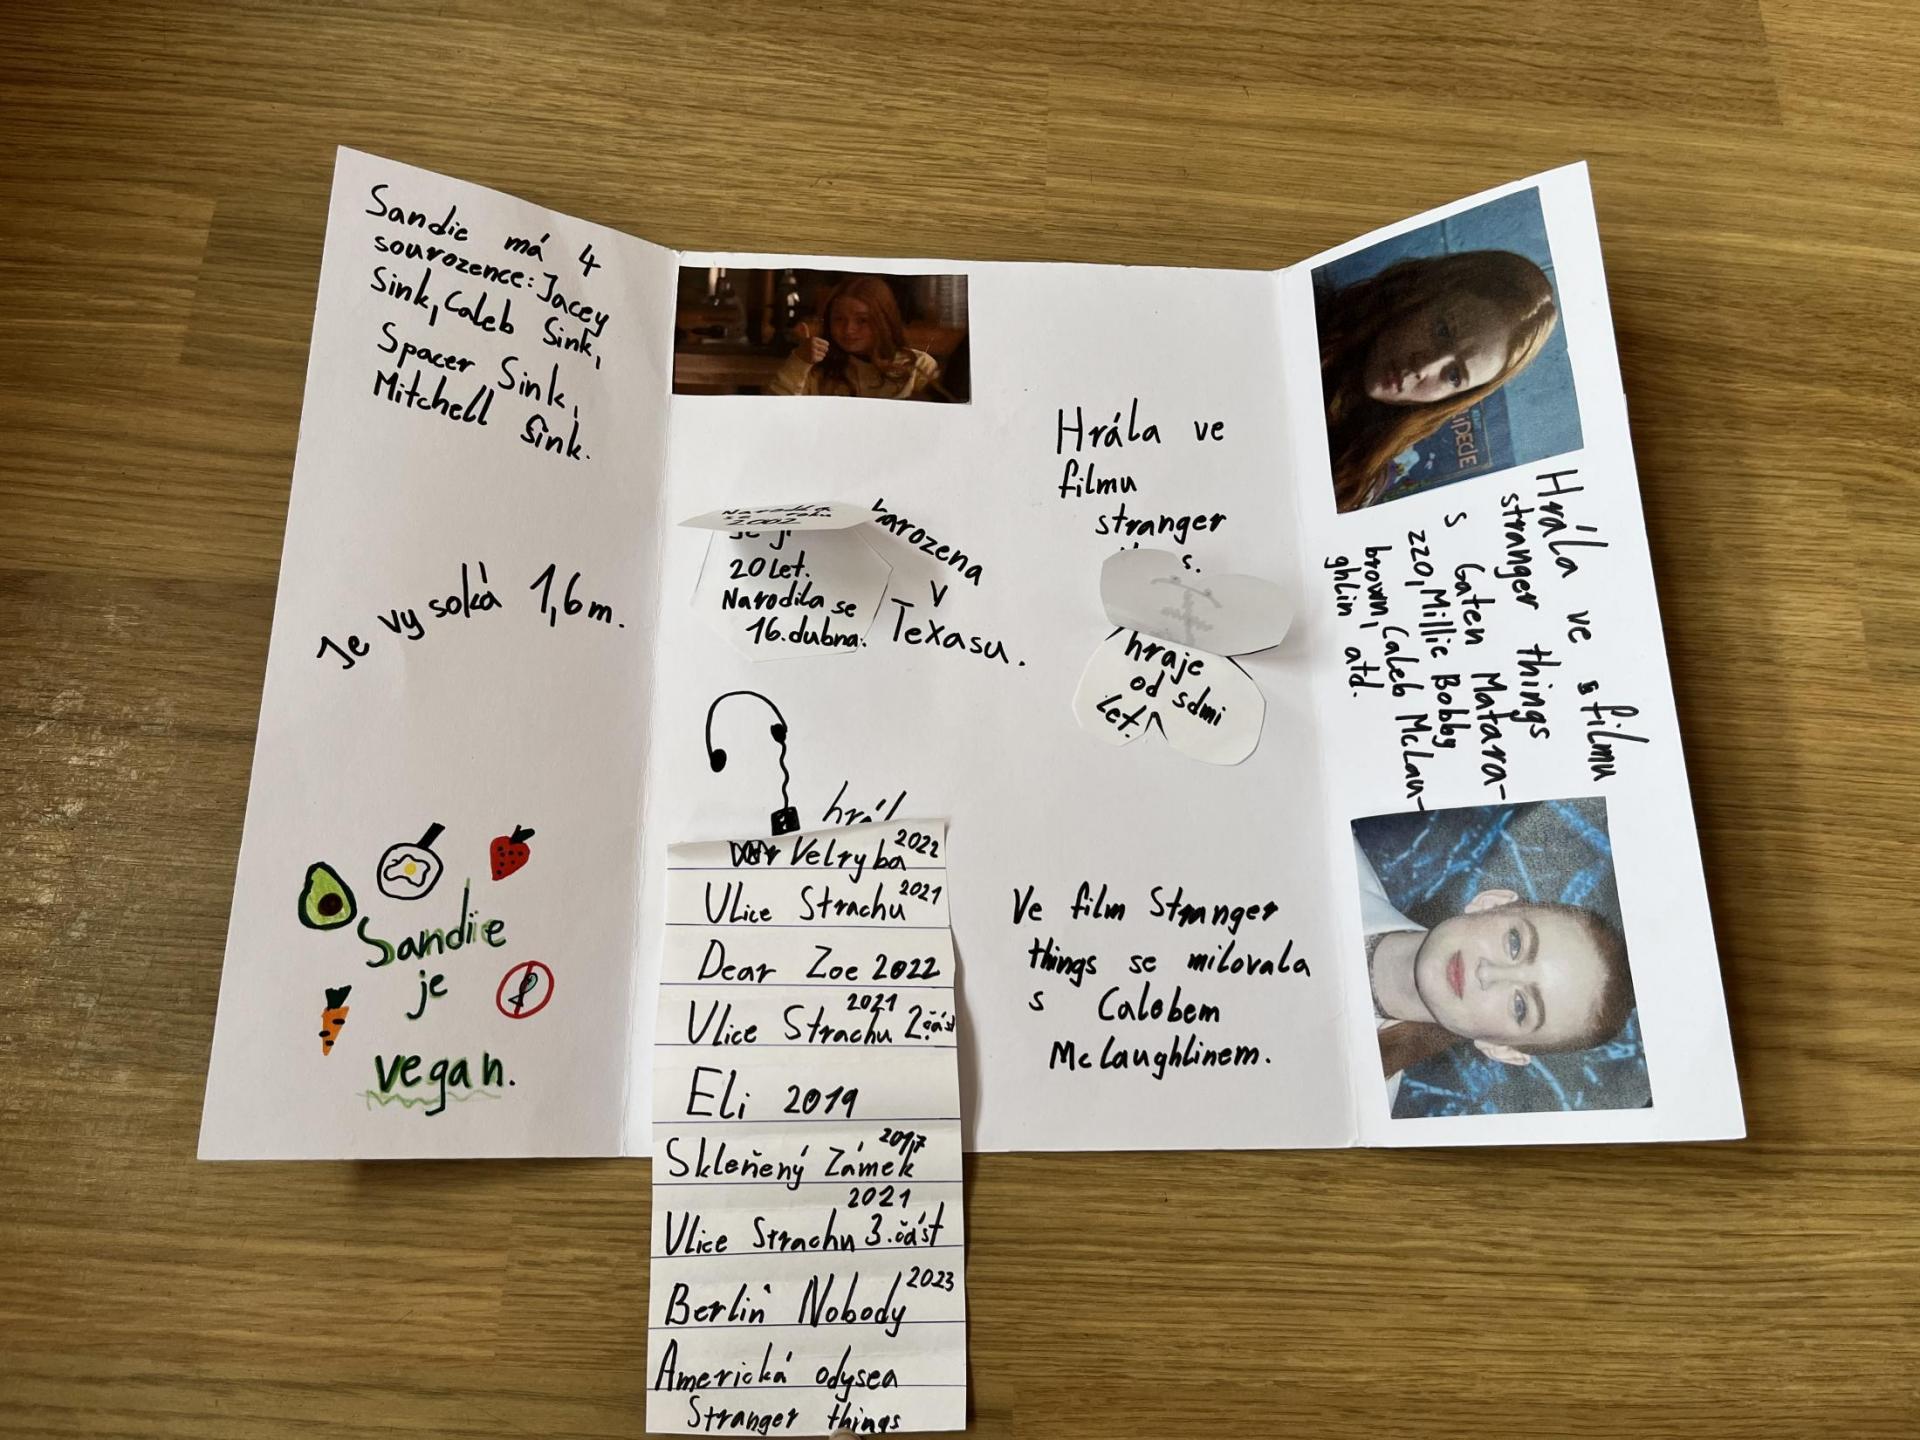 Sandie má 4
sourozence: Jacey
Sink, Caleb Sink,
Spacer Sink,
Mitchell Sink.
Je vysoká 1,6m.
Sandie
je
vegan.
2002
je jí
20 let.
Narodila se
16. dubna.
narozena
v
Texasu.
hrál
Velryba 2022
Ulice Strachu 2021
Dear Zoe 2022
2021
Ulice Strachu 2.část
Eli 2019
2017
Skleňený Zámek
2021
Ulice Strachu 3.část
Berlin Nobody 2023
Americká odysea
Stranger things
Hrála ve
filmu
stranger
hraje
od sdmi
let.
Ve film Stranger
things se milovala
s Calebem
McLaughlinem.
Hrála ve filmu
stranger things
s Gaten Matara-
zzo, Millie Bobby
brown, Caleb McLau-
ghlin atd.